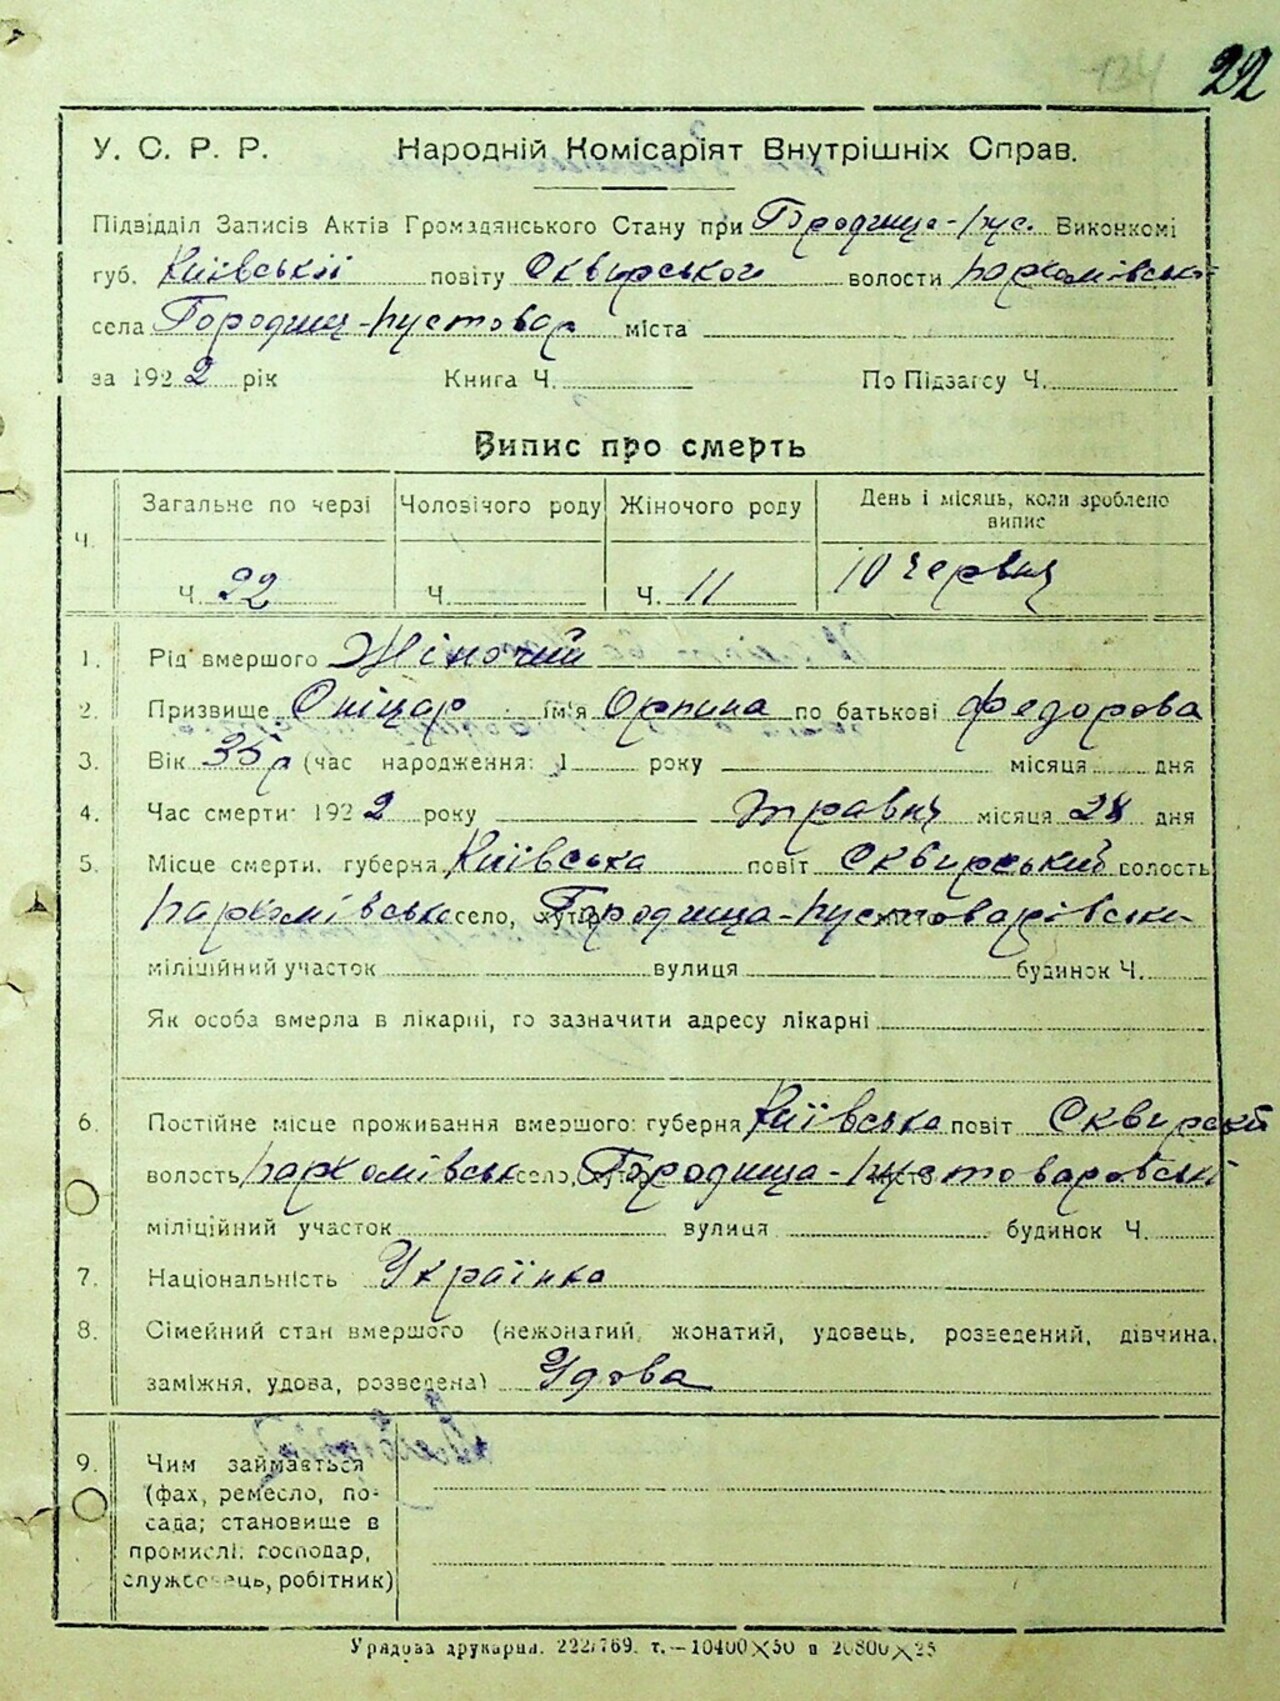 134
22
У. С. Р. Р. Народній Комісаріят Внутрішніх Справ.
Підвідділ Записів Актів Громадянського Стану при Городища-пус. Виконкомі
губ. Київській повіту Сквирської волости пархомівської
села Городищ-пустовар міста
за 1922 рік Книга Ч. По Підзагсу Ч.
Випис про смерть
Ч. Загальне по черзі Чоловічого роду Жіночого роду День і місяць, коли зроблено випис
Ч. 22 Ч. Ч. 11 10 червня
1. Рід вмершого Жіночий
2. Призвище Сніцар ім'я Орпина по батькові Федорова
3. Вік 35 р (час народження: 1 року місяця дня
4. Час смерти: 1922 року травня місяця 28 дня
5. Місце смерти. губерня Київська повіт Сквирський волость
пархомівська село, хутір Городища-пустоварівськи
міліційний участок вулиця будинок Ч.
Як особа вмерла в лікарні, то зазначити адресу лікарні
6. Постійне місце проживання вмершого: губерня Київська повіт Сквирский
волость пархомівськ село, Городища-пустоваровські
міліційний участок вулиця будинок Ч.
7. Національність Українка
8. Сімейний стан вмершого (нежонатий, жонатий, удовець, розведений, дівчина,
заміжня, удова, розведена) Удова
9. Чим займається
(фах, ремесло, по-
сада; становище в
промислі: господар,
службовець, робітник)
Урядова друкарня. 222/769. т.—10400×50 и 20800×25